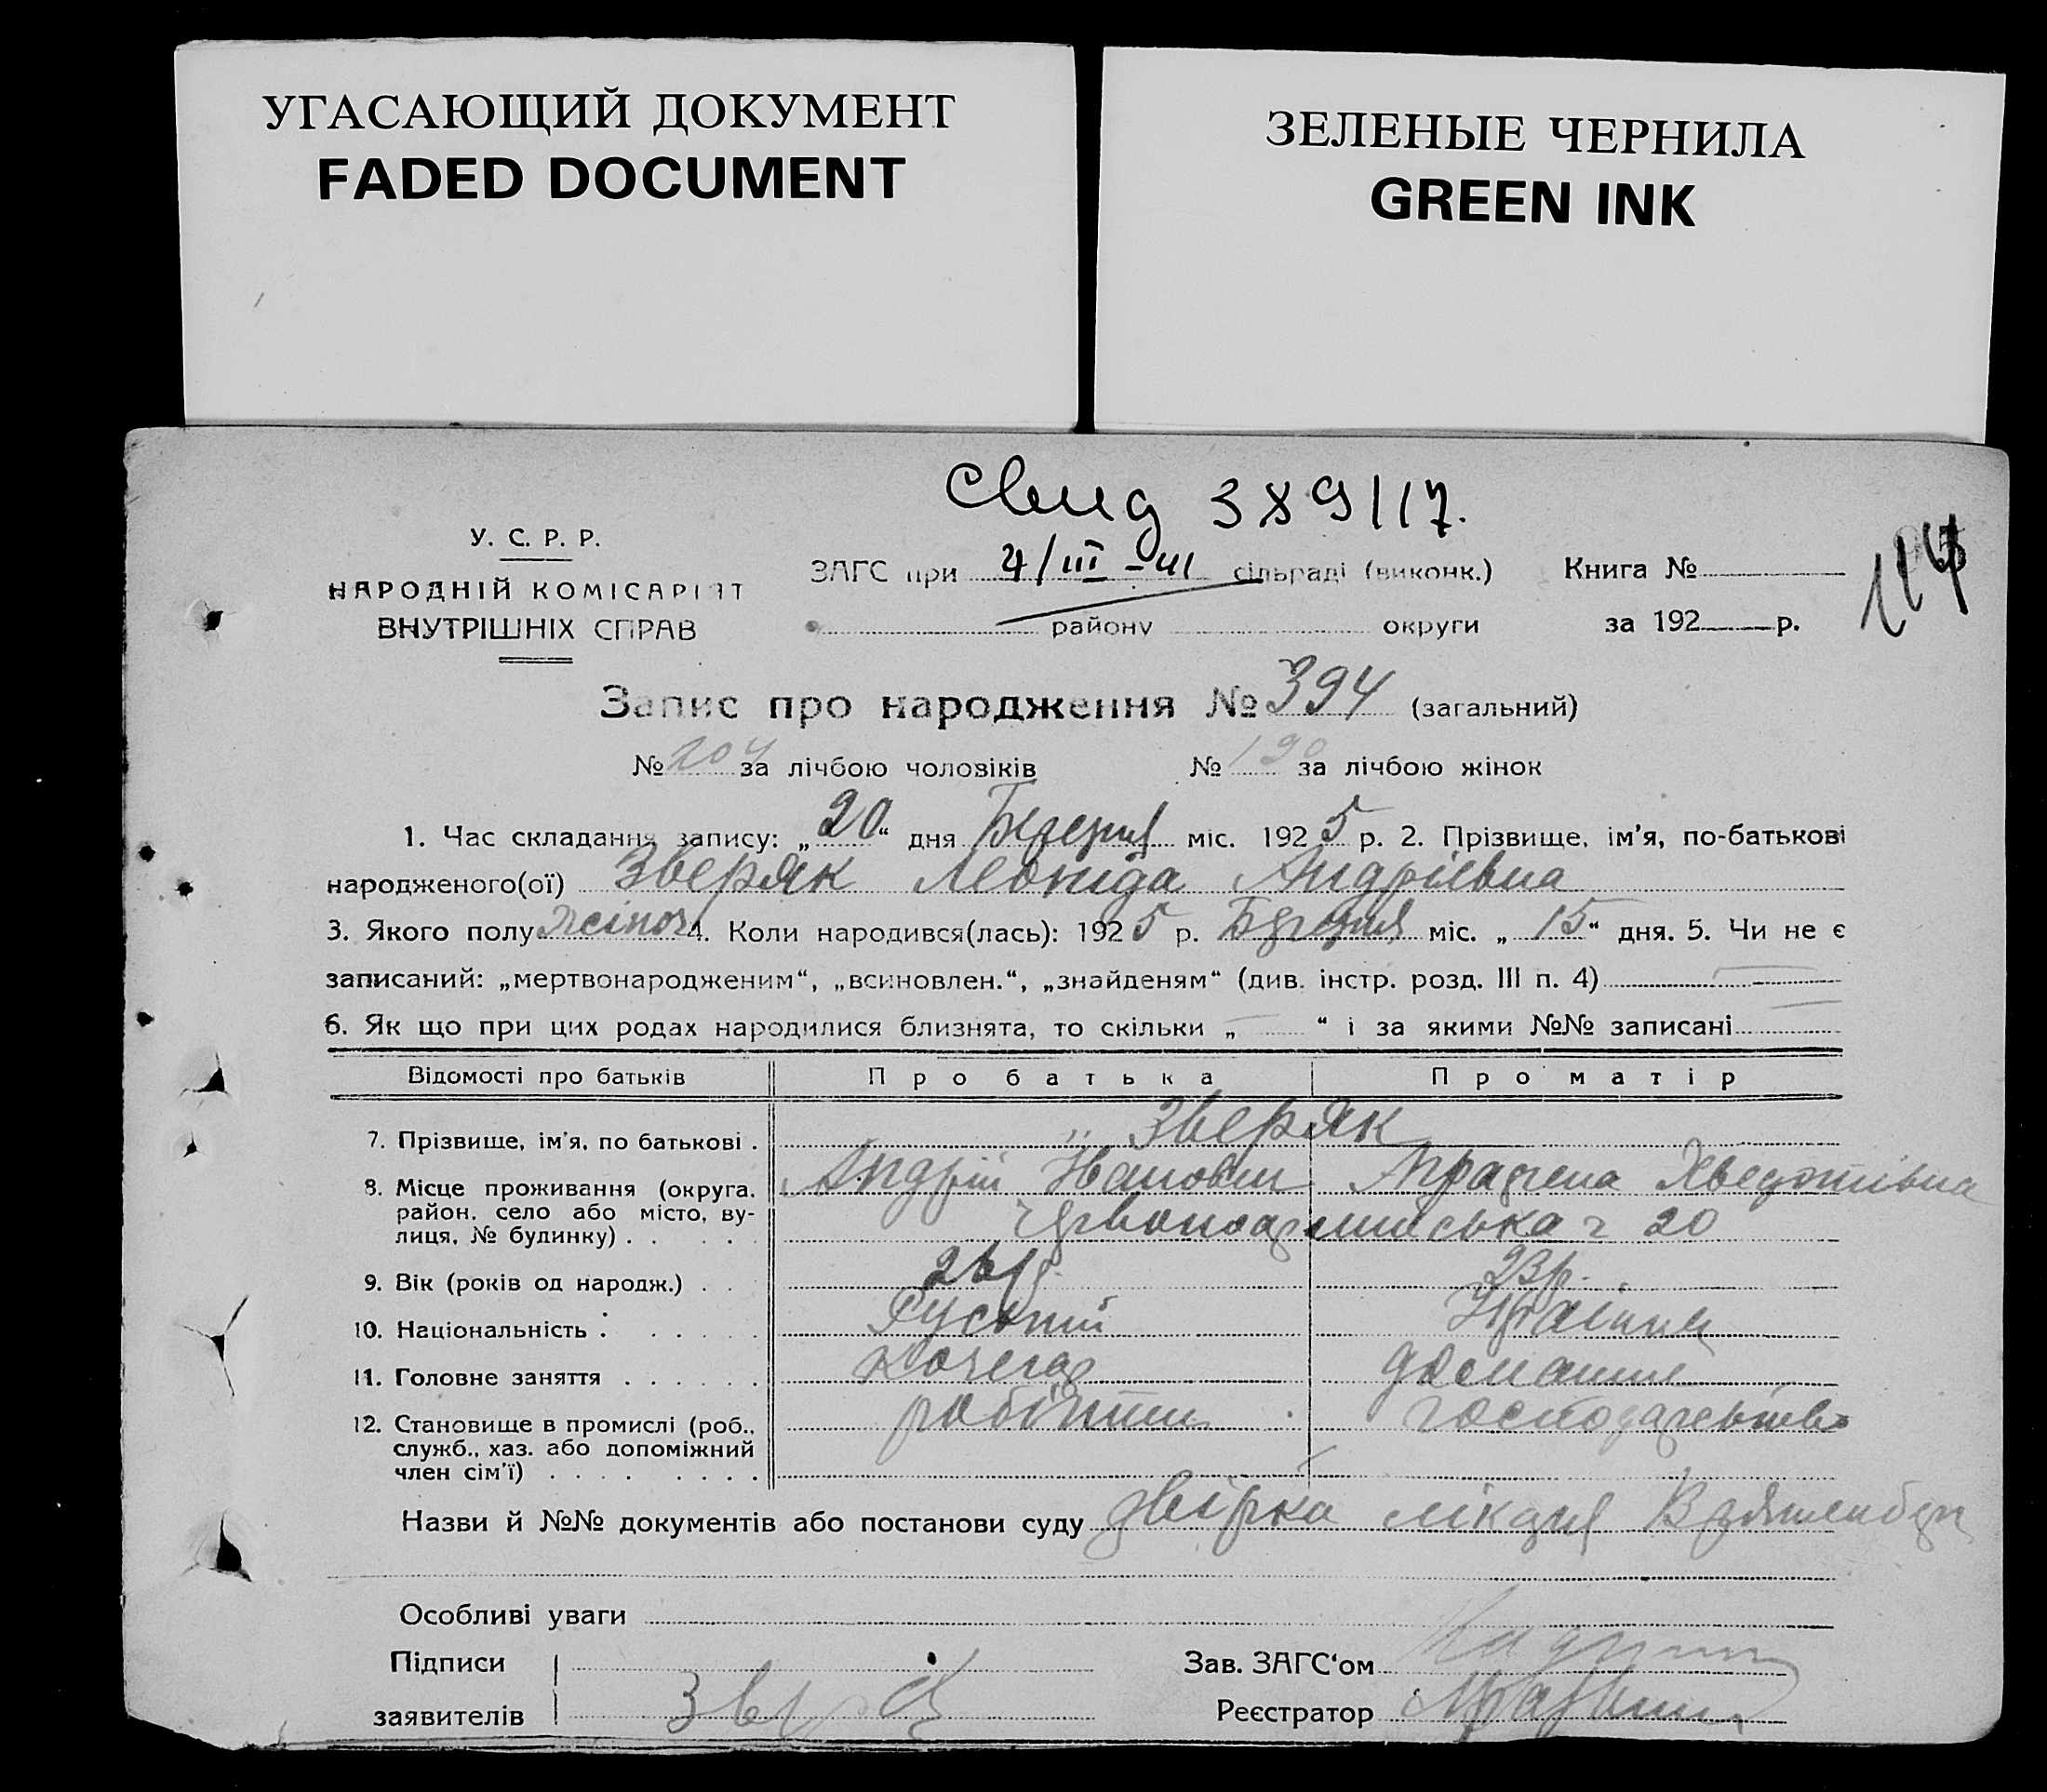 УГАСАЮЩИЙ ДОКУМЕНТ
FADED DOCUMENT
ЗЕЛЕНЫЕ ЧЕРНИЛА
GREEN INK
Свид 389117.
У. С. Р. Р.
НАРОДНІЙ КОМІСАРІЯТ
ВНУТРІШНІХ СПРАВ
ЗАГС при 4/III - 41 сільраді (виконк.)
району округи
Книга №
за 192 р.
Запис про народження № 394 (загальний)
№ 204 за лічбою чоловіків № 190 за лічбою жінок
1. Час складання запису: „20“ дня Березня міс. 1925 р. 2. Прізвище, ім'я, по-батькові
народженого(ої) Зверяк Леоніда Андріївна
3. Якого полу жіноч 4. Коли народився(лась): 1925 р. Березня міс. „15“ дня. 5. Чи не є
записаний: „мертвонародженим“, „всиновлен.“, „знайденям“ (див. інстр. розд. III п. 4)
6. Як що при цих родах народилися близнята, то скільки „ “ і за якими №№ записані
Відомості про батьків Про батька Про матір
7. Прізвище, ім'я, по батькові . Зверяк
Андрій Іванович Хведотівна
8. Місце проживання (округа, район, село або місто, ву-
лиця, № будинку) . . . . Червоноармійська ч 20
9. Вік (років од народж.) . . 26 р. 23 р.
10. Національність . . . . . Руський Українка
11. Головне заняття . . . . . . Кочегар домашнє
12. Становище в промислі (роб., робітник господарство
служб., хаз. або допоміжний
член сім'ї) . . . . . . . .
Назви й №№ документів або постанови суду довірка лікаря
Особливі уваги
Підписи
заявителів
Зав. ЗАГС'ом
Реєстратор